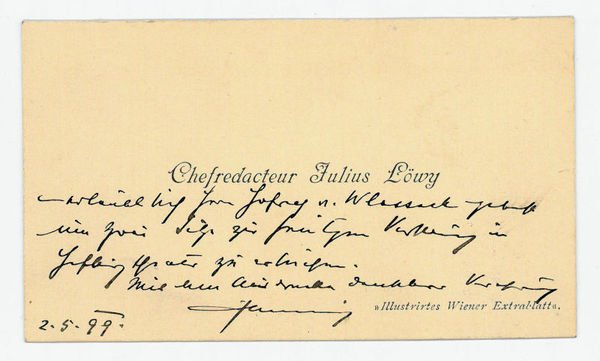 Chefredacteur Julius Löwy
erlaubt sich Herrn Hofrat v. Wlassack
um zwei Sitze zur heutigen Vorstellung im
Hofburgtheater zu ersuchen.
Mit dem Ausdrucke dankbarer Verehrung
»Illustrirtes Wiener Extrablatt«.
2.5.99.